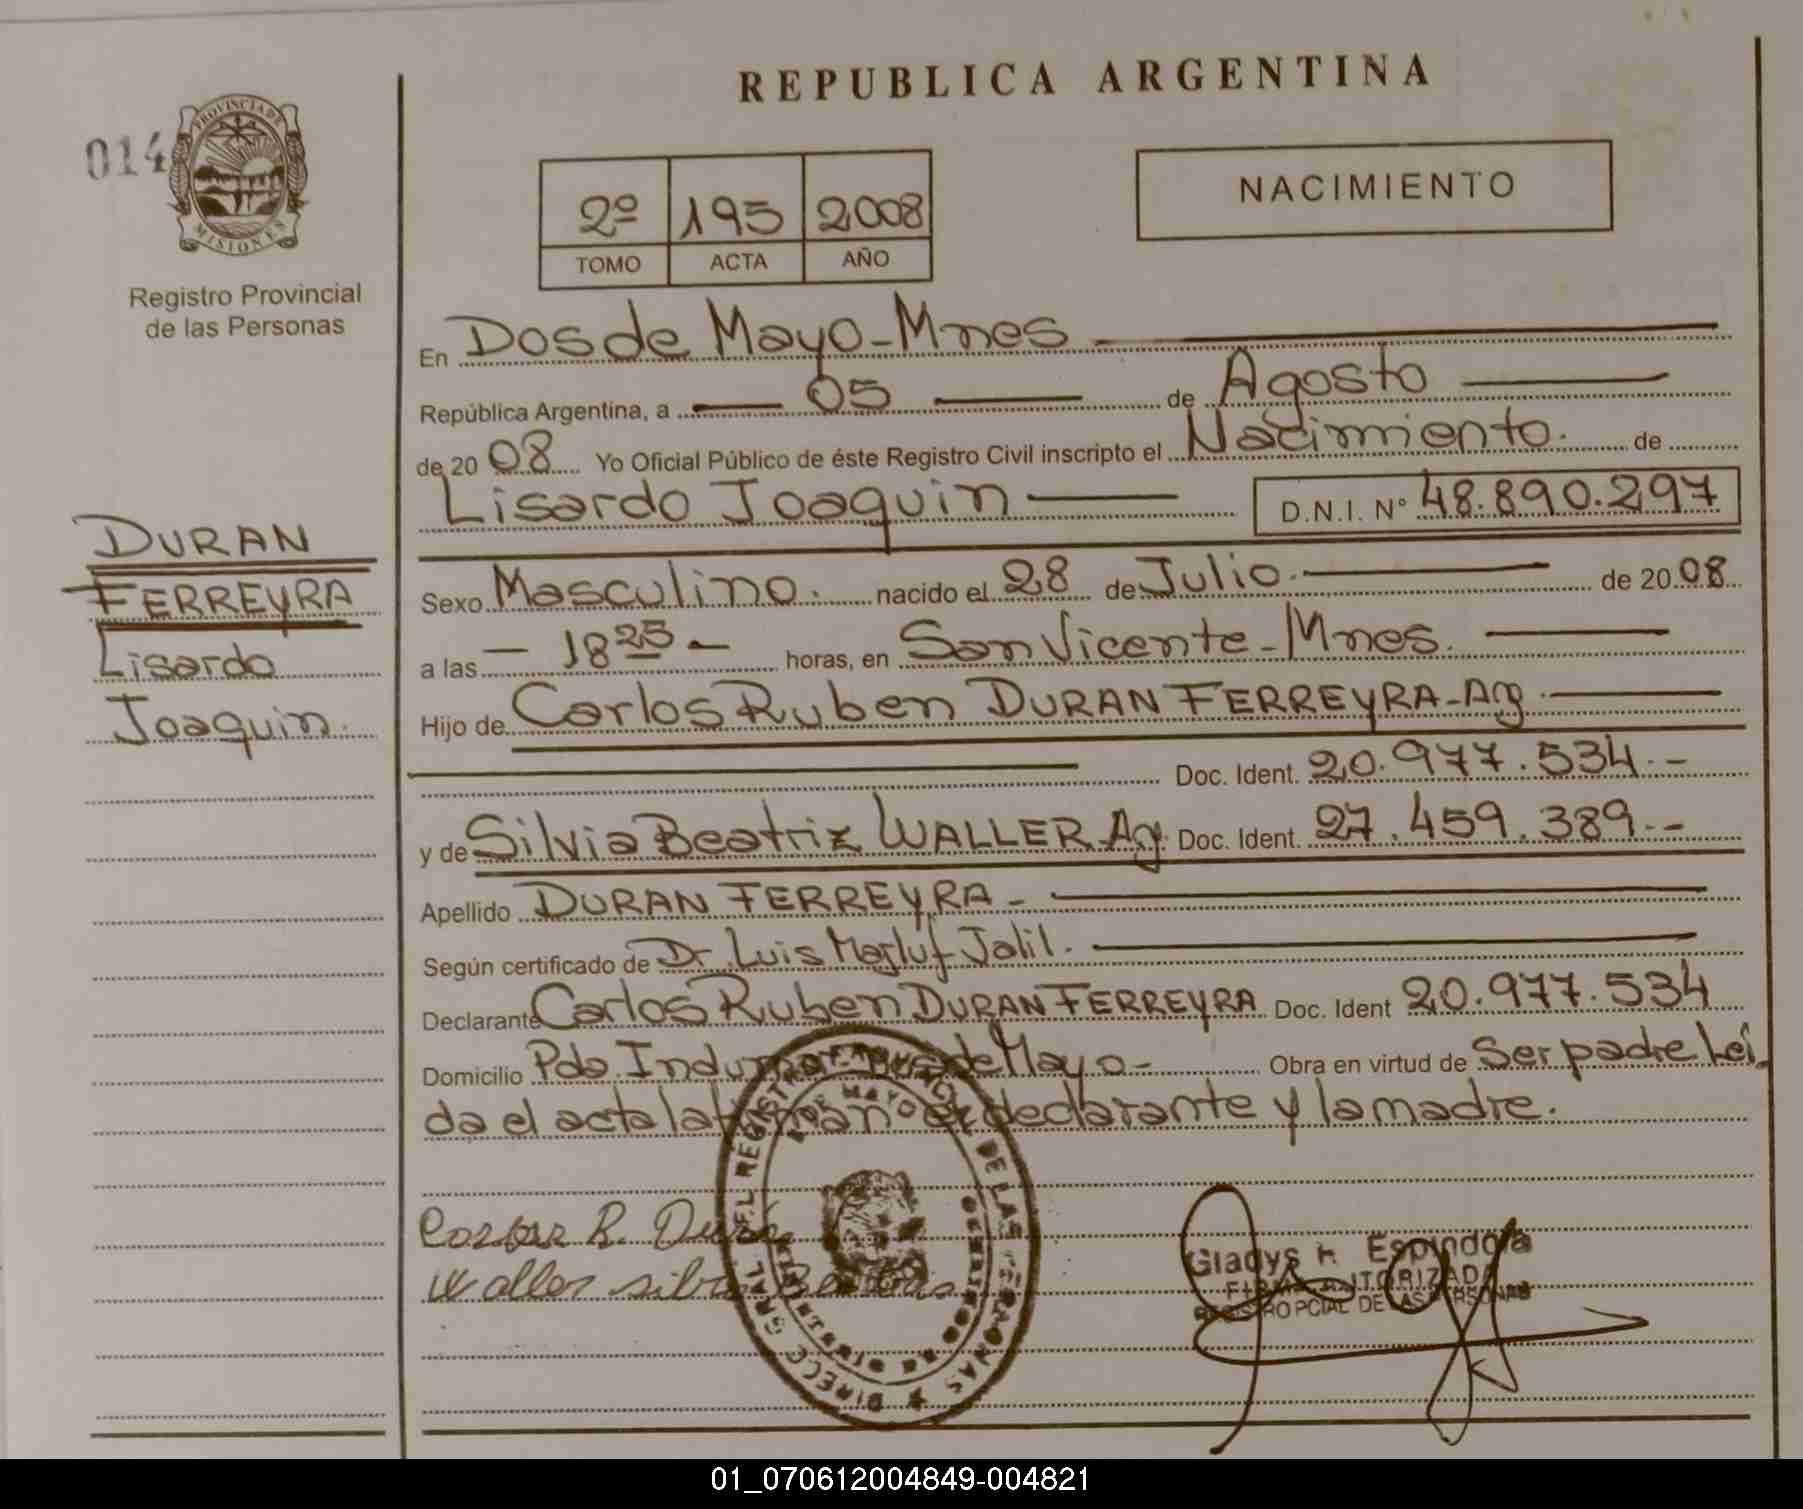 REPUBLICA ARGENTINA
014
PROVINCIA DE
MISIONES
Registro Provincial
de las Personas
2º 195 2008
TOMO ACTA AÑO
NACIMIENTO
DURAN
FERREYRA
Lisardo
Joaquin.
En Dos de Mayo - Mnes
República Argentina, a 05 de Agosto
de 20 08 Yo Oficial Público de éste Registro Civil inscripto el Nacimiento. de
Lisardo Joaquin D.N.I. Nº 48.890.297
Sexo Masculino. nacido el 28 de Julio. de 20 08
a las - 18 25 - horas, en San Vicente - Mnes.
Hijo de Carlos Ruben DURAN FERREYRA - Arg.
Doc. Ident. 20.977.534.-
y de Silvia Beatriz WALLER Arg. Doc. Ident. 27.459.389.--
Apellido DURAN FERREYRA -
Según certificado de Dr. Luis Majluf Jalil.
Declarante Carlos Ruben DURAN FERREYRA Doc. Ident 20.977.534
Domicilio Pdo. Indumar Dos de Mayo - Obra en virtud de Ser padre Leí
da el acta la firman el declarante y la madre.
Waller
Gladys Espindola
FIRMA AUTORIZADA
REGISTRO PCIAL DE LAS PERSONAS
01_070612004849-004821